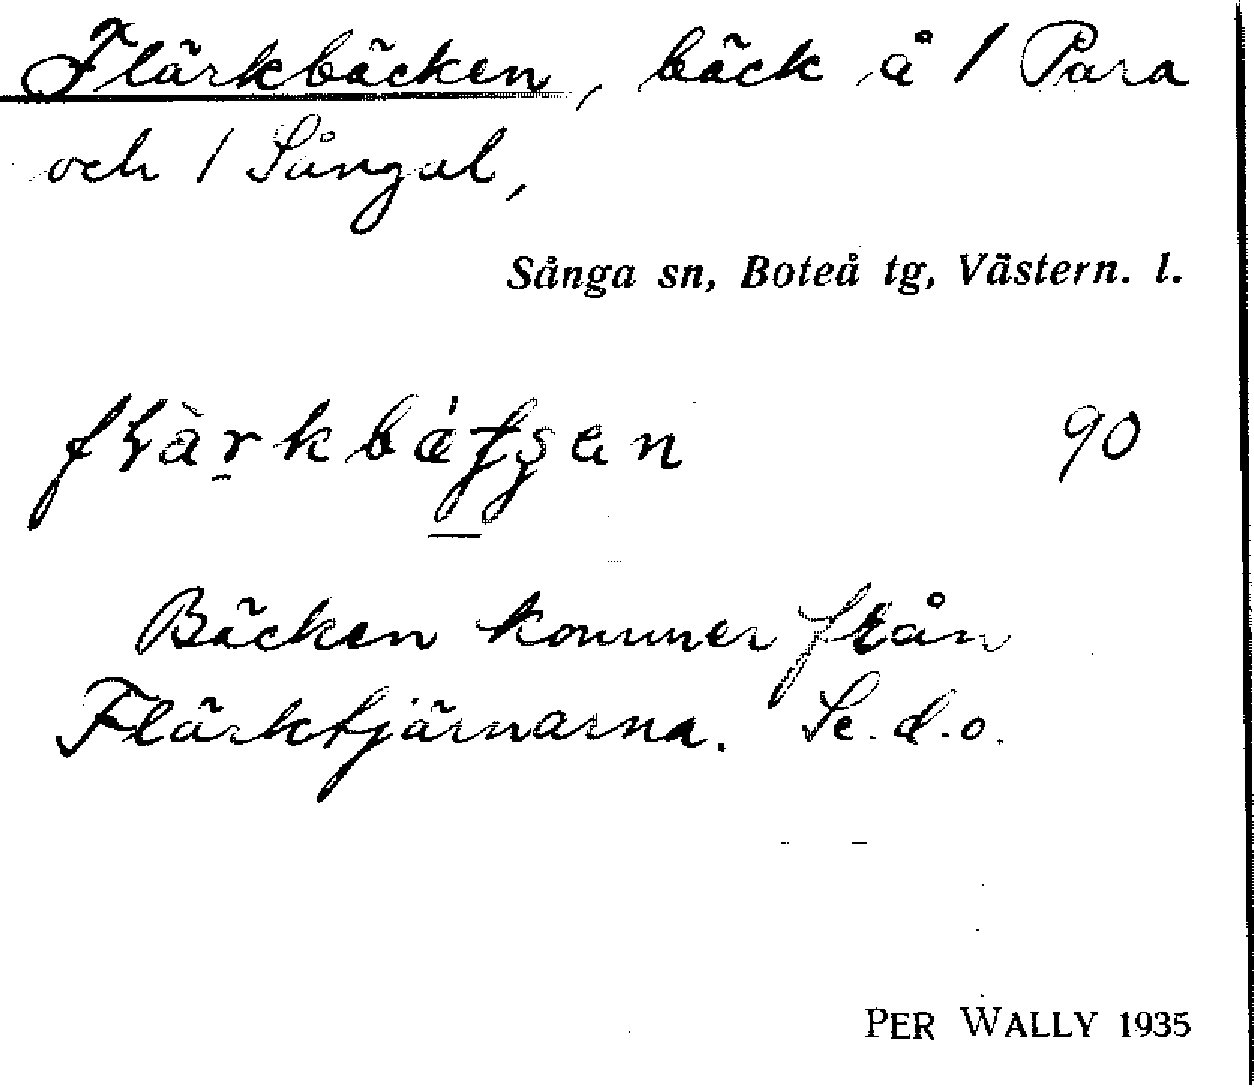 Flärkbäcken, bäck å 1 Para
och 1 Sångal,
Sånga sn, Boteå tg, Västern. l.
90
Bäcken kommer från
Flärktjärnarna. Se. d.o.
PER WALLY 1935